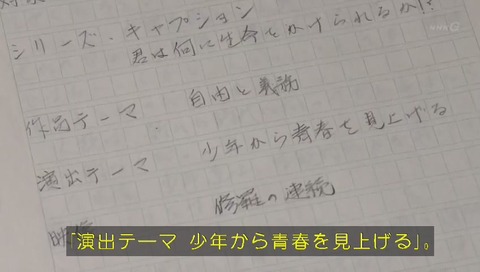 NHK G
シリーズ・キャプション
君は何に生命をかけられるか!?
作品テーマ 自由と義務
演出テーマ 少年から青春を見上げる
修羅の連続
「演出テーマ 少年から青春を見上げる」。